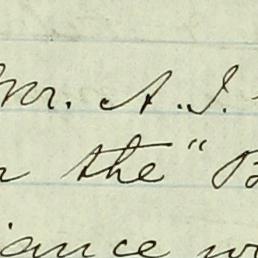 Mr. A. J.
the "B
iance w